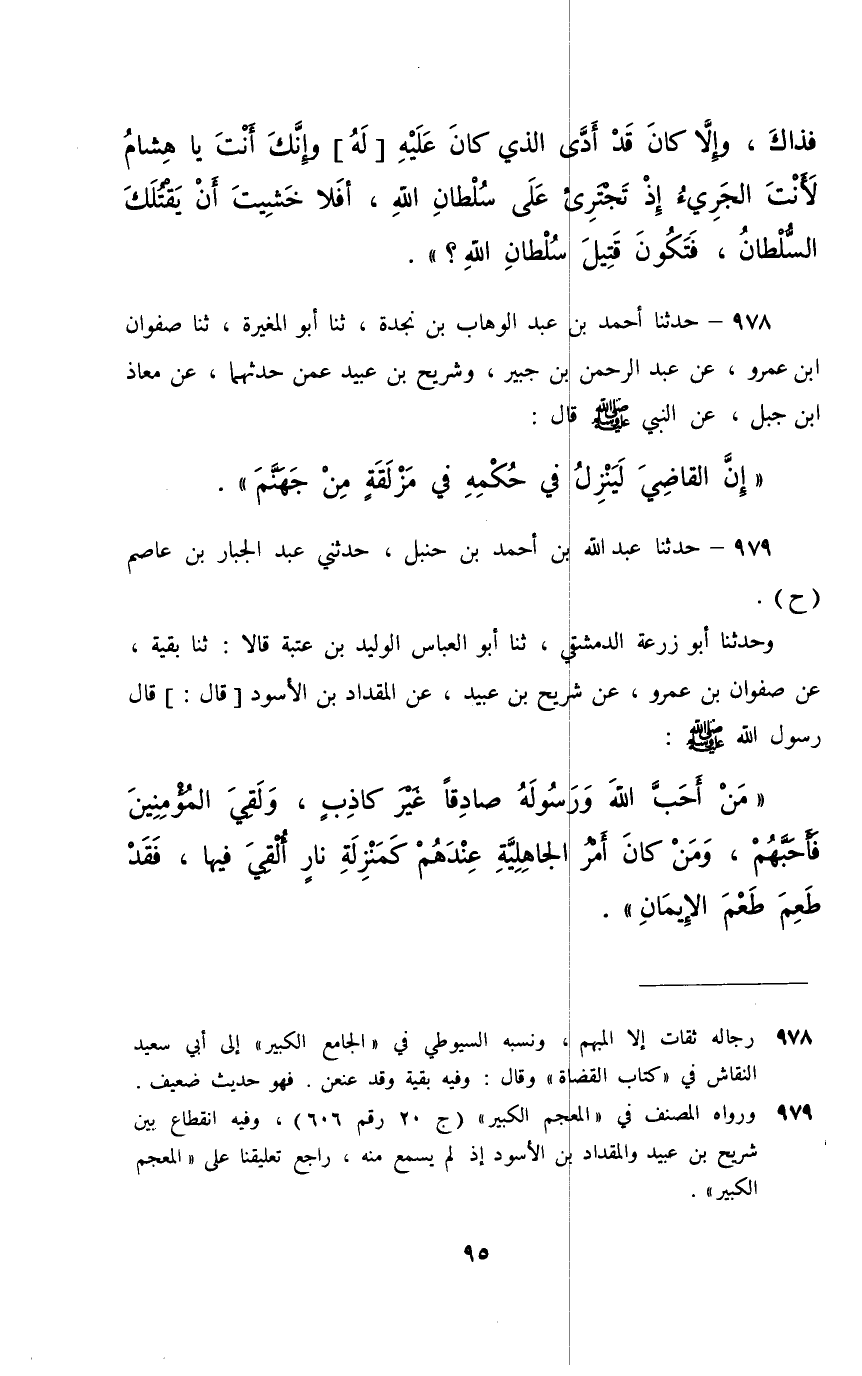 فذاكَ ، وإِلَّا كانَ قَدْ أَدَّى الذي كانَ عَلَيْهِ [ لَهُ ] وإِنَّكَ أَنْتَ يا هِشامُ
لَأَنْتَ الجَرِيءُ إِذْ تَجْتَرِئُ عَلَى سُلْطانِ اللهِ ، أفَلا خَشِيتَ أَنْ يَقْتُلَكَ
السُّلْطانُ ، فَتَكُونَ قَتِيلَ سُلْطانِ اللهِ ؟ » .
٩٧٨ – حدثنا أحمد بن عبد الوهاب بن نجدة ، ثنا أبو المغيرة ، ثنا صفوان
ابن عمرو ، عن عبد الرحمن بن جبير ، وشريح بن عبيد عمن حدثهما ، عن معاذ
ابن جبل ، عن النبي ﷺ قال :
« إِنَّ القاضِيَ لَيَنْزِلُ في حُكْمِهِ في مَزْلَقَةٍ مِنْ جَهَنَّمَ » .
٩٧٩ – حدثنا عبد الله بن أحمد بن حنبل ، حدثني عبد الجبار بن عاصم
(ح) .
وحدثنا أبو زرعة الدمشقي ، ثنا أبو العباس الوليد بن عتبة قالا : ثنا بقية ،
عن صفوان بن عمرو ، عن شريح بن عبيد ، عن المقداد بن الأسود [ قال : ] قال
رسول الله ﷺ :
« مَنْ أَحَبَّ اللهَ وَرَسُولَهُ صادِقاً غَيْرَ كاذِبٍ ، وَلَقِيَ المُؤْمِنِينَ
فَأَحَبَّهُمْ ، وَمَنْ كانَ أَمْرُ الجاهِلِيَّةِ عِنْدَهُمْ كَمَنْزِلَةِ نارٍ أُلْقِيَ فيها ، فَقَدْ
طَعِمَ طَعْمَ الإِيمَانِ » .
٩٧٨ رجاله ثقات إلا المبهم ، ونسبه السيوطي في « الجامع الكبير » إلى أبي سعيد
النقاش في « كتاب القضاة » وقال : وفيه بقية وقد عنعن . فهو حديث ضعيف .
٩٧٩ ورواه المصنف في « المعجم الكبير » (ج ٢٠ رقم ٦٠٦) ، وفيه انقطاع بين
شريح بن عبيد والمقداد بن الأسود إذ لم يسمع منه ، راجع تعليقنا على « المعجم
الكبير » .
٩٥